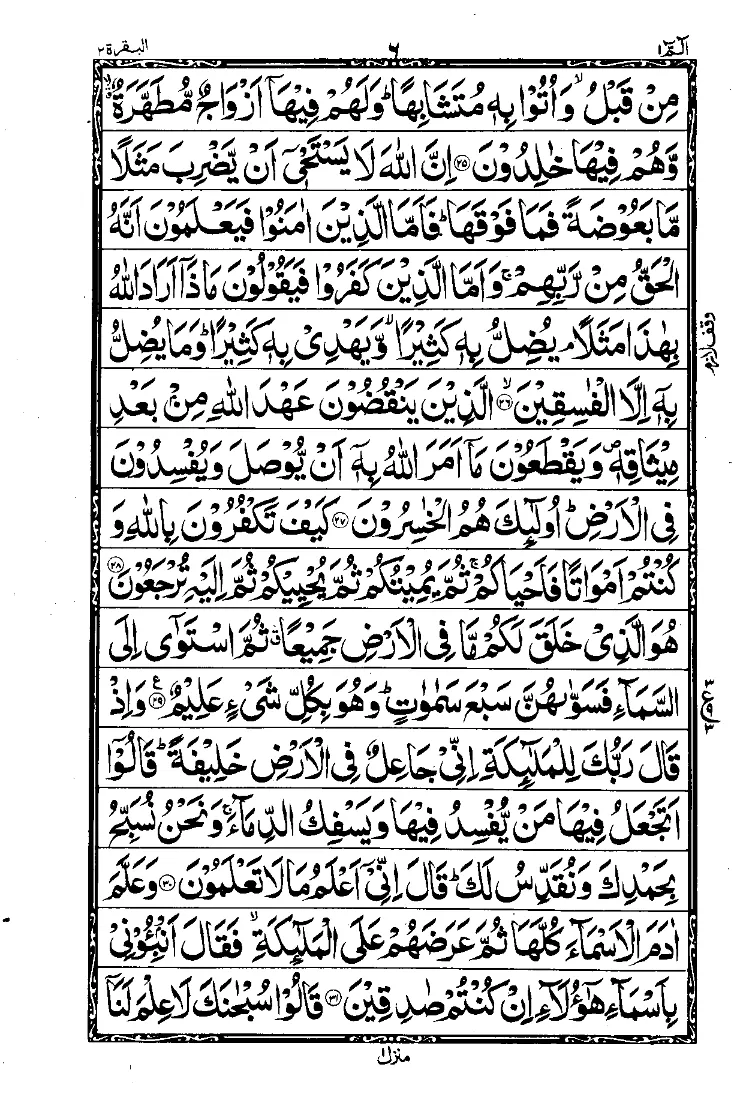 الٓمّٓ ١ ٦ البقرة ٢
مِنْ قَبْلُ ۙ وَاُتُوْا بِهٖ مُتَشَابِهًا ؕ وَلَهُمْ فِيْهَاۤ اَزْوَاجٌ مُّطَهَّرَةٌ ۙۗ
وَّهُمْ فِيْهَا خٰلِدُوْنَ ﴿۲۵﴾ اِنَّ اللّٰهَ لَا يَسْتَحْيٖۤ اَنْ يَّضْرِبَ مَثَلًا
مَّا بَعُوْضَةً فَمَا فَوْقَهَا ؕ فَاَمَّا الَّذِيْنَ اٰمَنُوْا فَيَعْلَمُوْنَ اَنَّهُ
الْحَقُّ مِنْ رَّبِّهِمْ ۚ وَاَمَّا الَّذِيْنَ كَفَرُوْا فَيَقُوْلُوْنَ مَاذَاۤ اَرَادَ اللّٰهُ
بِهٰذَا مَثَلًا ۘ يُضِلُّ بِهٖ كَثِيْرًا ۙ وَّيَهْدِىْ بِهٖ كَثِيْرًا ؕ وَمَا يُضِلُّ
وقف لازم
بِهٖۤ اِلَّا الْفٰسِقِيْنَ ۙ﴿۲۶﴾ الَّذِيْنَ يَنْقُضُوْنَ عَهْدَ اللّٰهِ مِنْۢ بَعْدِ
مِيْثَاقِهٖ ۪ وَيَقْطَعُوْنَ مَاۤ اَمَرَ اللّٰهُ بِهٖۤ اَنْ يُّوْصَلَ وَيُفْسِدُوْنَ
فِى الْاَرْضِ ؕ اُولٰٓئِكَ هُمُ الْخٰسِرُوْنَ ﴿۲۷﴾ كَيْفَ تَكْفُرُوْنَ بِاللّٰهِ وَ
كُنْتُمْ اَمْوَاتًا فَاَحْيَاكُمْ ۚ ثُمَّ يُمِيْتُكُمْ ثُمَّ يُحْيِيْكُمْ ثُمَّ اِلَيْهِ تُرْجَعُوْنَ ﴿۲۸﴾
هُوَ الَّذِىْ خَلَقَ لَكُمْ مَّا فِى الْاَرْضِ جَمِيْعًا ۗ ثُمَّ اسْتَوٰۤى اِلَى
السَّمَآءِ فَسَوّٰىهُنَّ سَبْعَ سَمٰوٰتٍ ؕ وَهُوَ بِكُلِّ شَىْءٍ عَلِيْمٌ ﴿۲۹﴾ ع وَاِذْ
قَالَ رَبُّكَ لِلْمَلٰٓئِكَةِ اِنِّىْ جَاعِلٌ فِى الْاَرْضِ خَلِيْفَةً ؕ قَالُوْۤا
اَتَجْعَلُ فِيْهَا مَنْ يُّفْسِدُ فِيْهَا وَيَسْفِكُ الدِّمَآءَ ۚ وَنَحْنُ نُسَبِّحُ
بِحَمْدِكَ وَنُقَدِّسُ لَكَ ؕ قَالَ اِنِّىْۤ اَعْلَمُ مَا لَا تَعْلَمُوْنَ ﴿۳۰﴾ وَعَلَّمَ
اٰدَمَ الْاَسْمَآءَ كُلَّهَا ثُمَّ عَرَضَهُمْ عَلَى الْمَلٰٓئِكَةِ ۙ فَقَالَ اَنْۢبِـُٔوْنِىْ
بِاَسْمَآءِ هٰٓؤُلَآءِ اِنْ كُنْتُمْ صٰدِقِيْنَ ﴿۳۱﴾ قَالُوْا سُبْحٰنَكَ لَا عِلْمَ لَنَاۤ
منزل ١